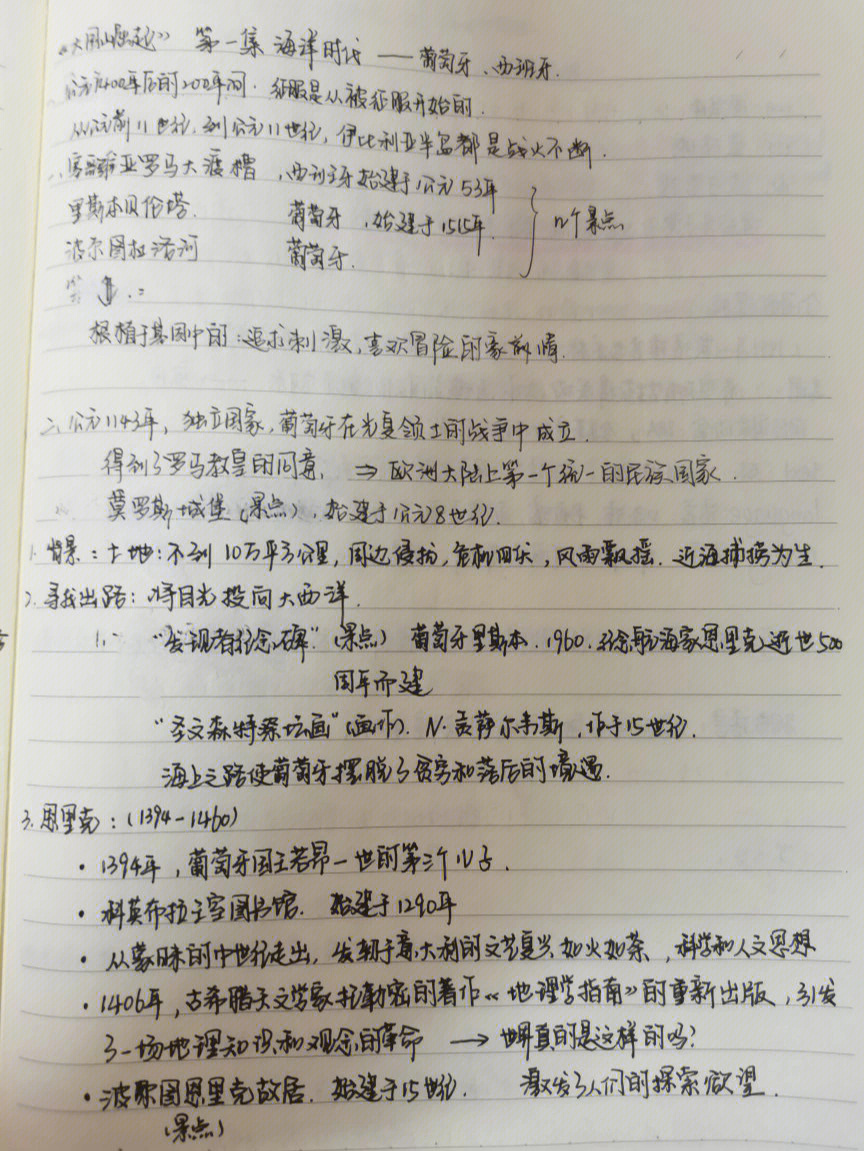 《大国崛起》 第一集 海洋时代 —— 葡萄牙、西班牙.
年后的200年间. 征服是从被征服开始的.
从公元前11世纪.到公元11世纪,伊比利亚半岛都是战火不断.
亚罗马大渡槽 ,西班牙始建于公元53年
里斯本贝伦塔. 葡萄牙 ,始建于1515年. } n个景点
波尔图杜洛河 葡萄牙.
根植于基因中的:追求刺激,喜欢冒险的豪放情.
二、公元1143年, 独立国家,葡萄牙在光复领土的战争中成立.
得到了罗马教皇的同意, ⇒ 欧洲大陆上第一个统一的民族国家.
莫罗斯城堡(景点),始建于公元8世纪.
1. 背景:土地:不到10万平方公里,周边侵扰,危机四伏,风雨飘摇.近海捕捞为生.
2. 寻找出路:将目光投向大西洋.
“发现者纪念碑”(景点) 葡萄牙里斯本.1960.纪念航海家恩里克逝世500
周年而建
“圣文森特祭坛画”(画作). N·贡萨尔韦斯,作于15世纪.
海上之路使葡萄牙摆脱了贫穷和落后的境遇.
3. 恩里克:(1394-1460)
· 1394年,葡萄牙国王若昂一世的第三个儿子.
· 科英布拉王室图书馆. 始建于1290年
· 从蒙昧的中世纪走出,发轫于意大利的文艺复兴如火如荼,科学和人文思想
· 1406年,古希腊天文学家托勒密的著作《地理学指南》的重新出版,引发
了一场地理知识和观念的革命 → 世界真的是这样的吗?
· 波尔图恩里克故居. 始建于15世纪. 激发了人们的探索欲望.
(景点)